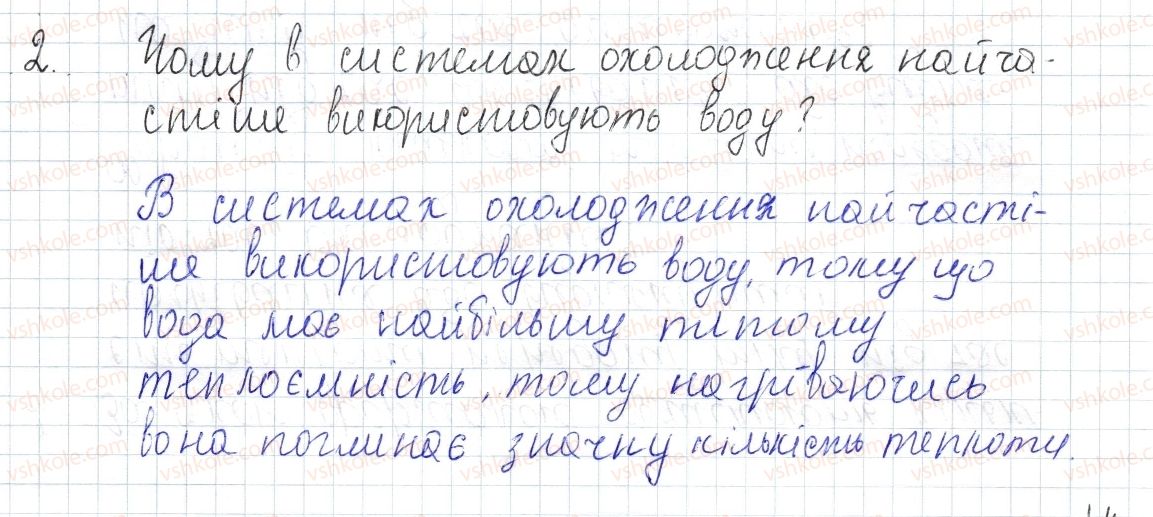 2. Чому в системах охолодження найча-
стіше використовують воду?
В системах охолодження найчасті-
ше використовують воду, тому що
вода має найбільшу питому
теплоємність, тому нагріваючись
вона поглинає значну кількість теплоти.